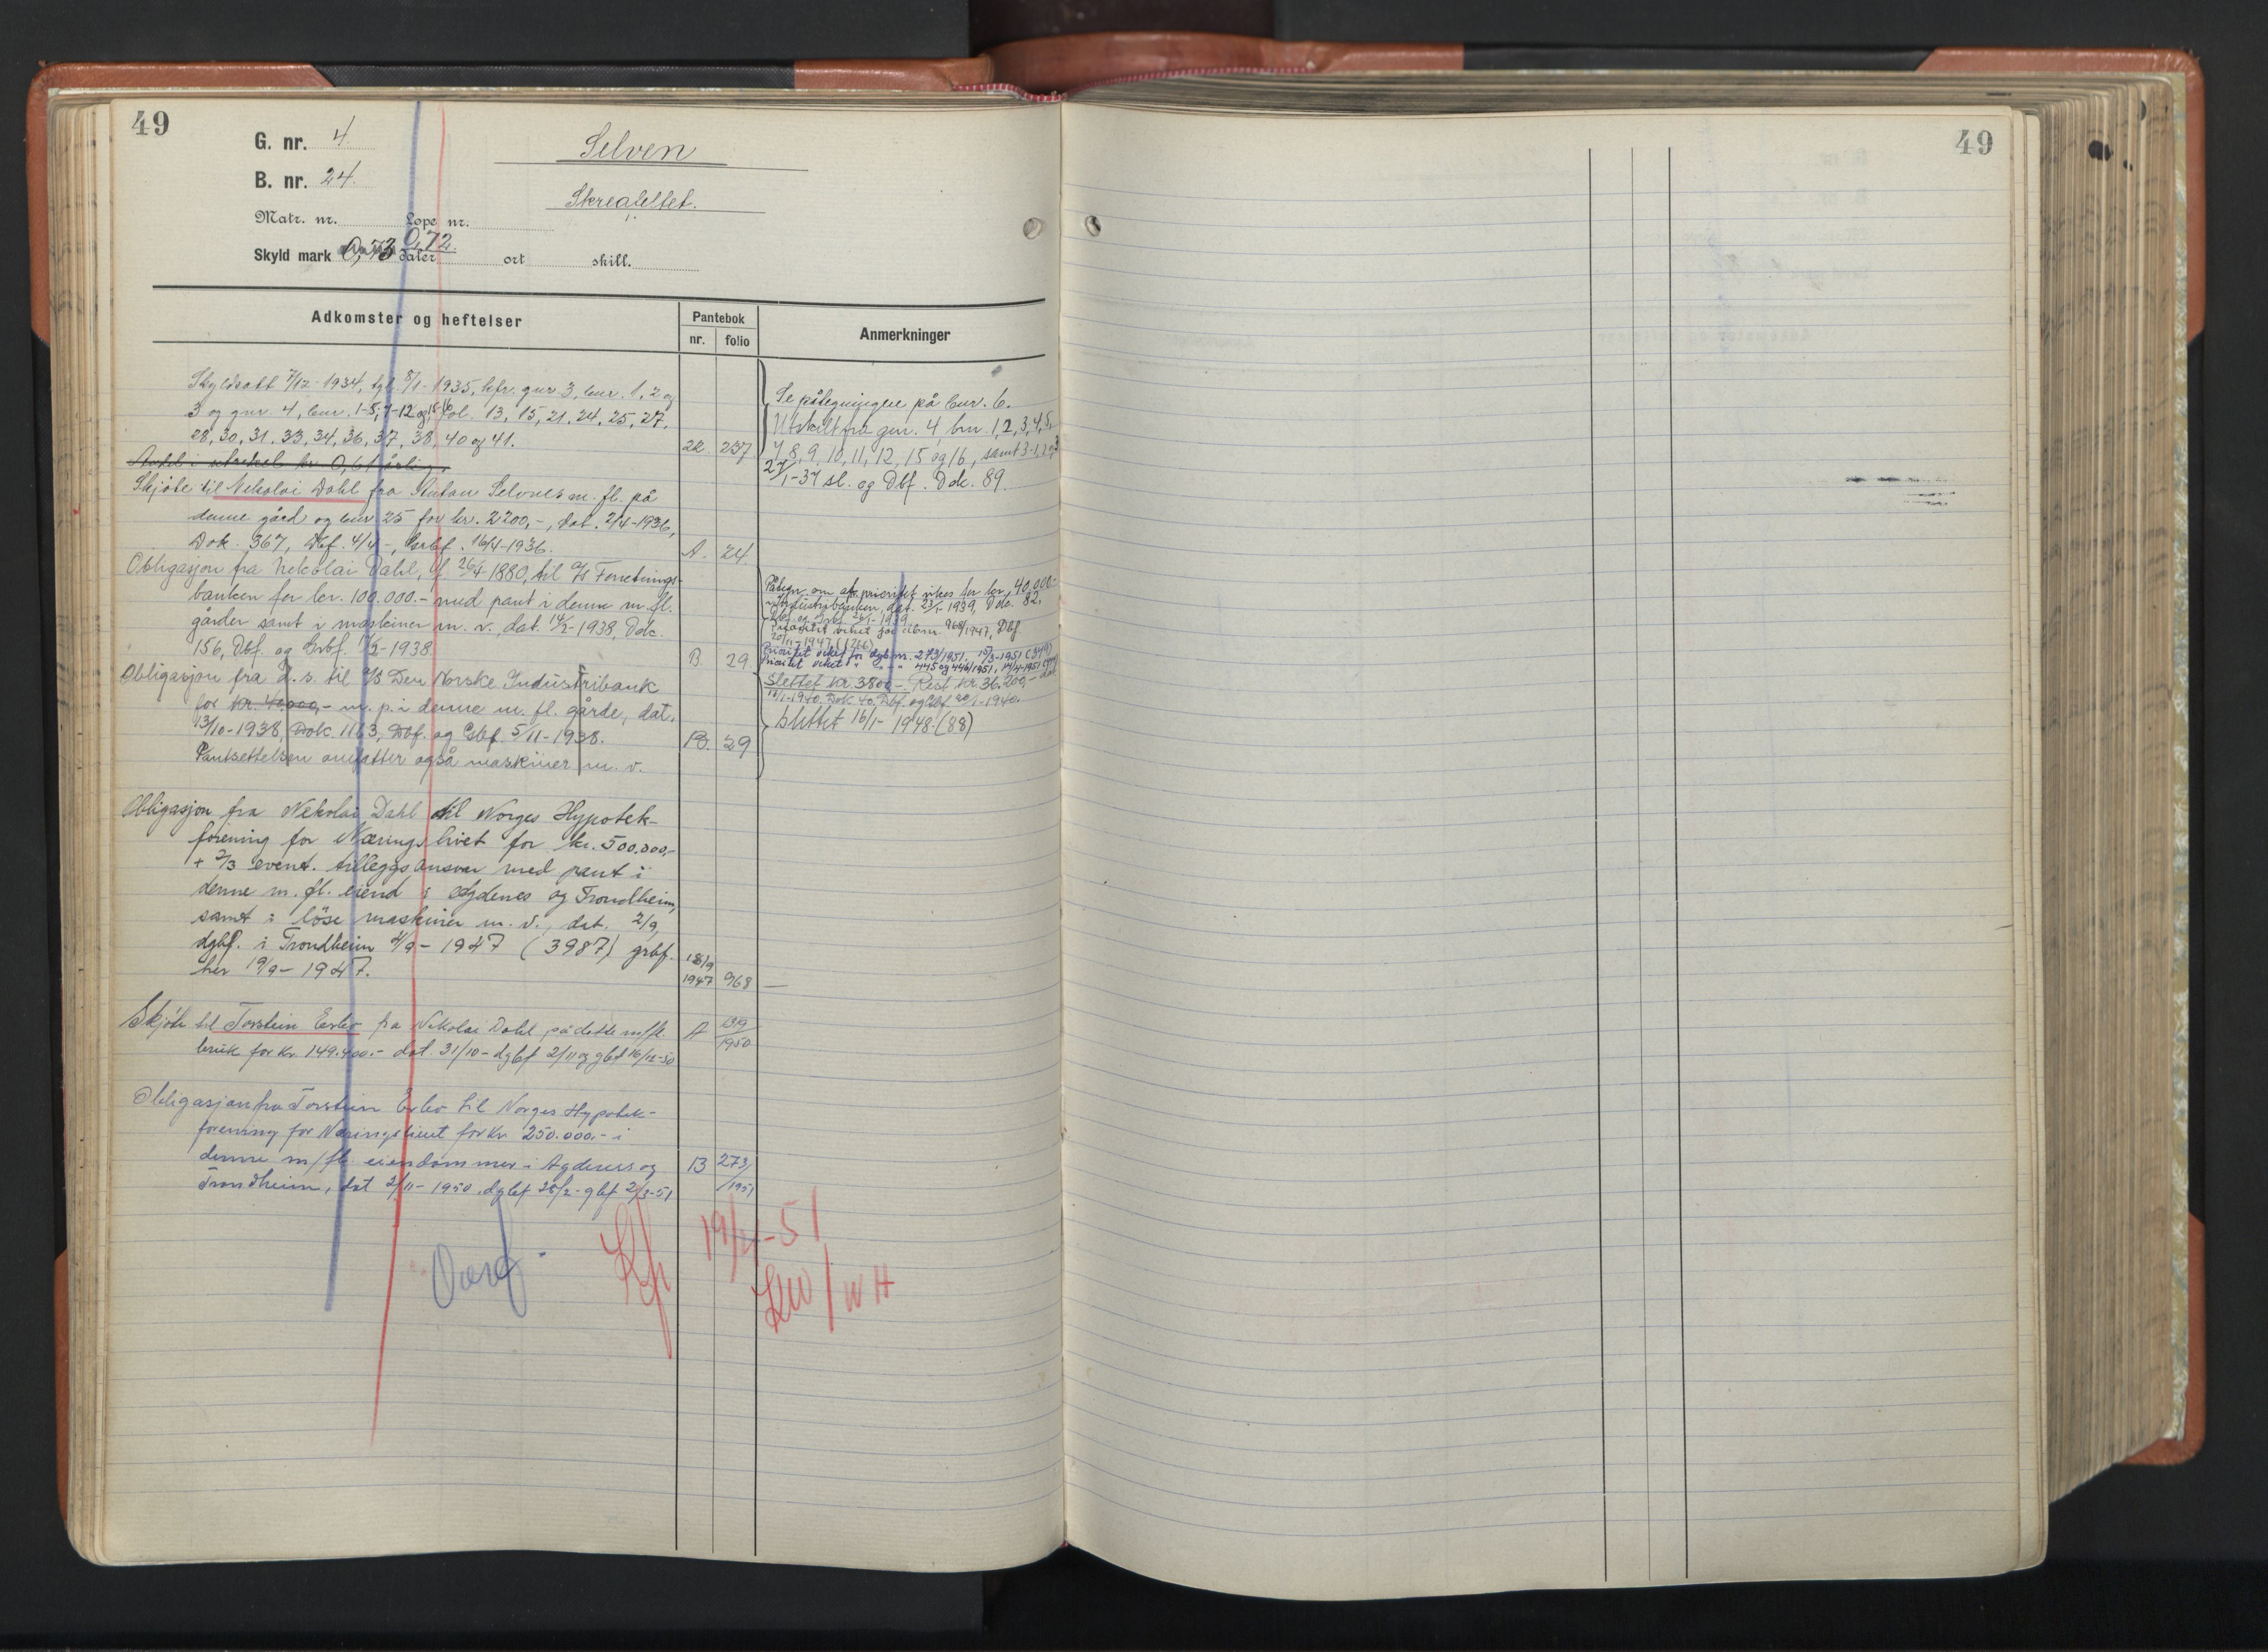 49
49
G. nr. 4
Selven
B. nr. 24.
Matr. nr. Løpe nr.
Skyld mark 0,73 daler ort skill.
0,72.
Adkomster og heftelser
Pantebok
nr. folio
Anmerkninger
Skyldsatt 7/12-1934, tgl. 8/1-1935, hefr. gnr. 3, bnr. 1, 2 og
3 og gnr. 4, bnr. 1-5, 7-12 og 15-16 fol. 13, 15, 21, 24, 25, 27,
28, 30, 31, 33, 34, 36, 37, 38, 40 og 41.
22 237
Se påtegningene på bnr. 6.
Utskilt fra gnr. 4, bnr. 1, 2, 3, 4, 5,
7, 8, 9, 10, 11, 12, 15 og 16, samt 3-1, 2 og 3
27/1-37 sl. og Dbf. Dok. 89.
Andel i utskel kr. 0,61 årlig.
Skjøte til Nekolai Dahl fra Anton Selvnes m. fl. på
denne gård og bnr. 25 for kr. 2200,-, dat. 2/4-1936,
Dok. 367, Dbf. 4/4-, Grbf. 16/4-1936.
A. 24
Obligasjon fra Nekolai Dahl, f. 26/4-1880, til A/S Forretnings-
banken for kr. 100.000.- med pant i denne m. fl.
gårder samt i maskiner m. v., dat. 14/2-1938, Dok.
156, Dbf. og Grbf. 17/2-1938
B. 29
Påtegn. om at prioritet vikes for kr. 40.000.-
Industribanken, dat. 23/1-1939, Dok. 82,
Prioritet veket for dbnr. 968/1947, Dbf.
20/11-1947 (1266)
Prioritet veket for dgb.nr. 273/1951, 15/3-1951 (349)
Prioritet veket " " 445 og 446/1951, 14/4-1951
Obligasjon fra d. s. til A/S Den Norske Industribank
for kr. 40.000,- m. p. i denne m. fl. gårde, dat.
13/10-1938, Dok. 1163, Dbf. og Gbf. 5/11-1938.
Pantsettelsen omfatter også maskiner m. v.
B. 29
Slettet kr. 3800,-. Rest kr. 36.200,- dat.
18/1-1940. Dok 40. Dbf. og Gbf. 20/1-1940.
Slettet 16/1-1948 (88)
Obligasjon fra Nekolai Dahl til Norges Hypotek-
forening for Næringslivet for kr. 500.000,-
+ 2/3 event. tilleggsansvar med pant i
denne m. fl. eiend i Agdenes og Trondheim,
samt i löse maskiner m. v., dat. 2/9,
dgbf. i Trondheim 4/9-1947 (3987) grbf.
her 19/9-1947.
18/9
1947 968
Skjöte til Torstein Erbo fra Nikolai Dahl på dette m/fl.
bruk for kr. 149.400.- dat. 31/10- dgbf 2/11 og gbf 16/12-50
A 1319/1950
Obligasjon fra Torstein Erbo til Norges Hypotek-
forening for Næringslivet for kr. 250.000.- i
denne m/fl. eiendommer i Agdenes og
Trondheim, dat 2/11-1950, dgbf 28/2- gbf 2/3-51
B 273/
/1951